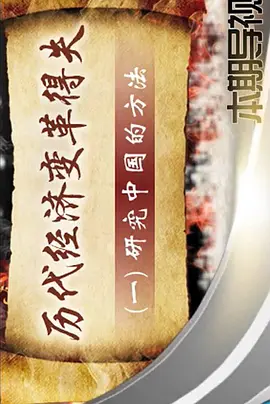 本期导视
历代经济变革得失
(一)研究中国的方法